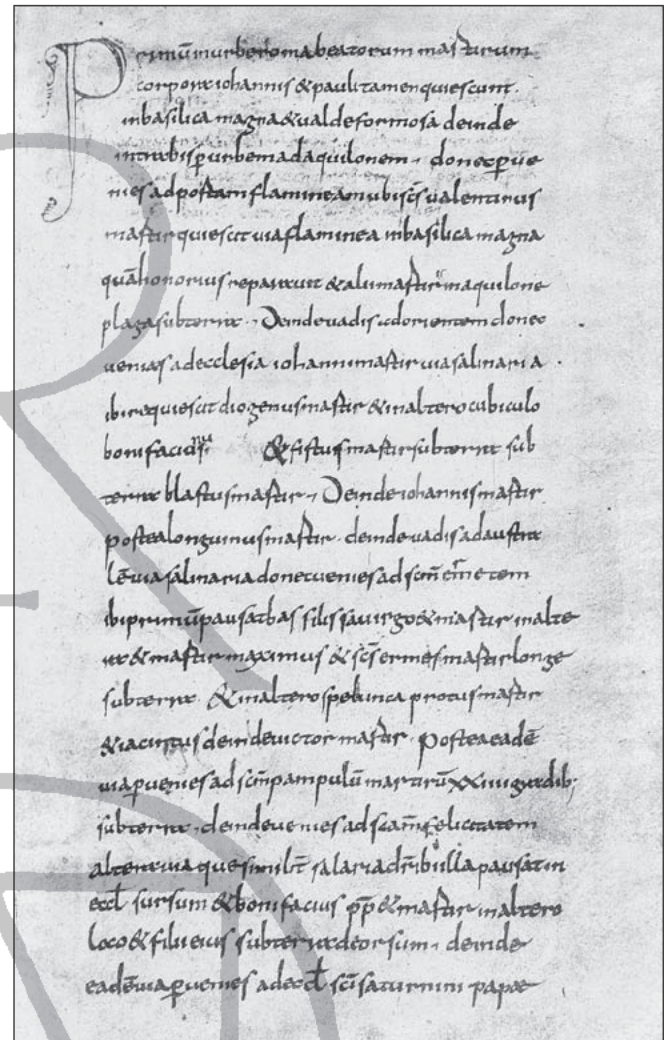 Primū in urbe roma beatorum martirum
corpora iohannis & pauli tamen quiescunt.
in basilica magna & ualde formosa deinde
intrabis ꝑ urbem ad aquilonem, donec ꝑue
nies ad portam flamineam ubi sc̄s ualentinus
martir quiescit uia flaminea in basilica magna
quā honorius reparauit & alii martir in aquilone
plaga sub terra. Deinde uadis ad orientem donec
uenias ad ecclesia iohanni martir uia salinaria.
ibi requiescit diogenus martir & in altero cubiculo
bonifacianus & fistus martir sub terra sub
terra blastus martir, Deinde iohannis martir
postea longuinus martir. deinde uadis ad austra
lē uia salinaria donec uenies ad sc̄m ermetem
ibi primū pausat bassilissa uirgo & martir in alte
ra & martir maximus & sc̄s ermes martir longe
sub terra. & in altero spelunca protus martir
& iacintus deinde uictor martir. postea eadē
uia ꝑuenies ad sc̄m pampulū martirū xxiiii gradib;
sub terra. deinde uenies ad sc̄am felicitatem
altera uia que simil̄t salaria dr̄ ibi illa pausat in
eccl̄ sursum & bonifacius p̄p & martir in altero
loco & filii eius sub terra deorsum, deinde
eadē uia ꝑuenies ad eccl̄ sc̄i saturnini papae